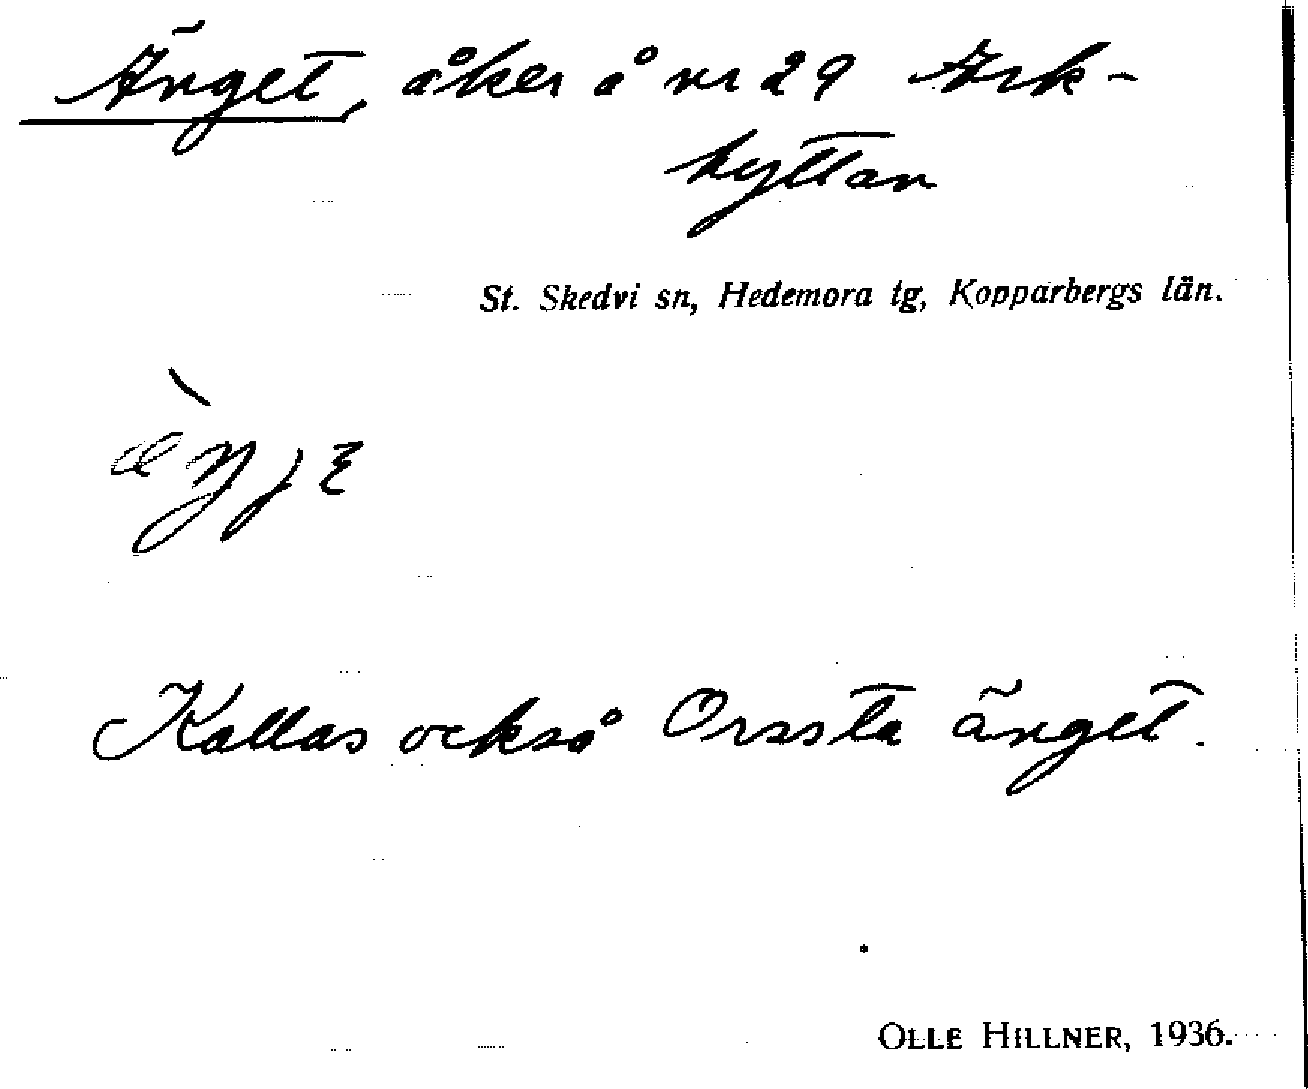 Änget, åker å nr 29 Ark-
hyttan
St. Skedvi sn, Hedemora tg, Kopparbergs län.
æ̀ŋjɛ
Kallas också Orssta änget.
OLLE HILLNER, 1936.